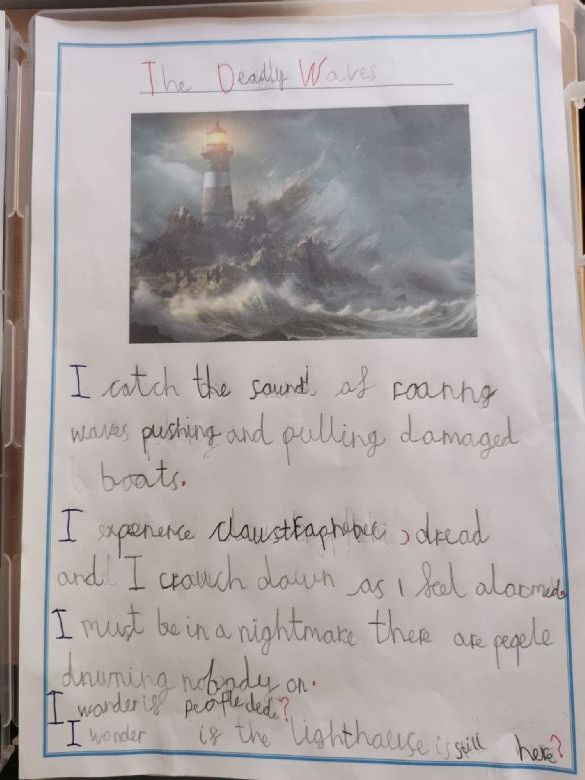 The Deadly Waves
I catch the sound of roaring
waves pushing and pulling damaged
boats.
I experience claustraphobic, dread
and I crouch down as I feel alarmed.
I must be in a nightmare there are pepele
drwning nobody on.
I wonder is people ded?
I wonder is the lighthause is still here?